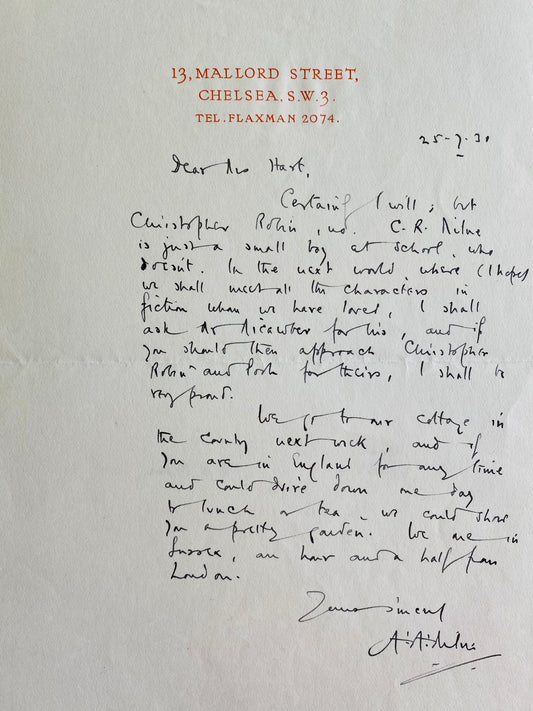 13, MALLORD STREET,
CHELSEA. S.W.3.
TEL. FLAXMAN 2074.
25-7-31
Dear Mrs Hart,
Certainly I will; but
Christopher Robin, no. C. R. Milne
is just a small boy at school, who
doesn't. In the next world, where (I hope)
we shall meet all the characters in
fiction whom we have loved, I shall
ask Mr Micawber for his, and if
you should then approach Christopher
Robin and Pooh for theirs, I shall be
very proud.
We go to our cottage in
the country next week, and if
you are in England for any time
and could drive down one day
to lunch or tea, we could show
you a pretty garden. We are in
Sussex, an hour and a half from
London.
Yours sincerely
A. A. Milne